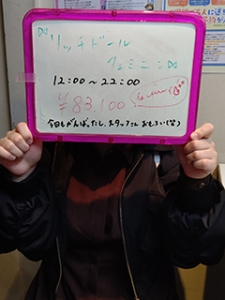 リッチドール
フェミニ
12:00〜22:00
¥83,100
今日もがんばったし、スタッフさん おもろい(笑)